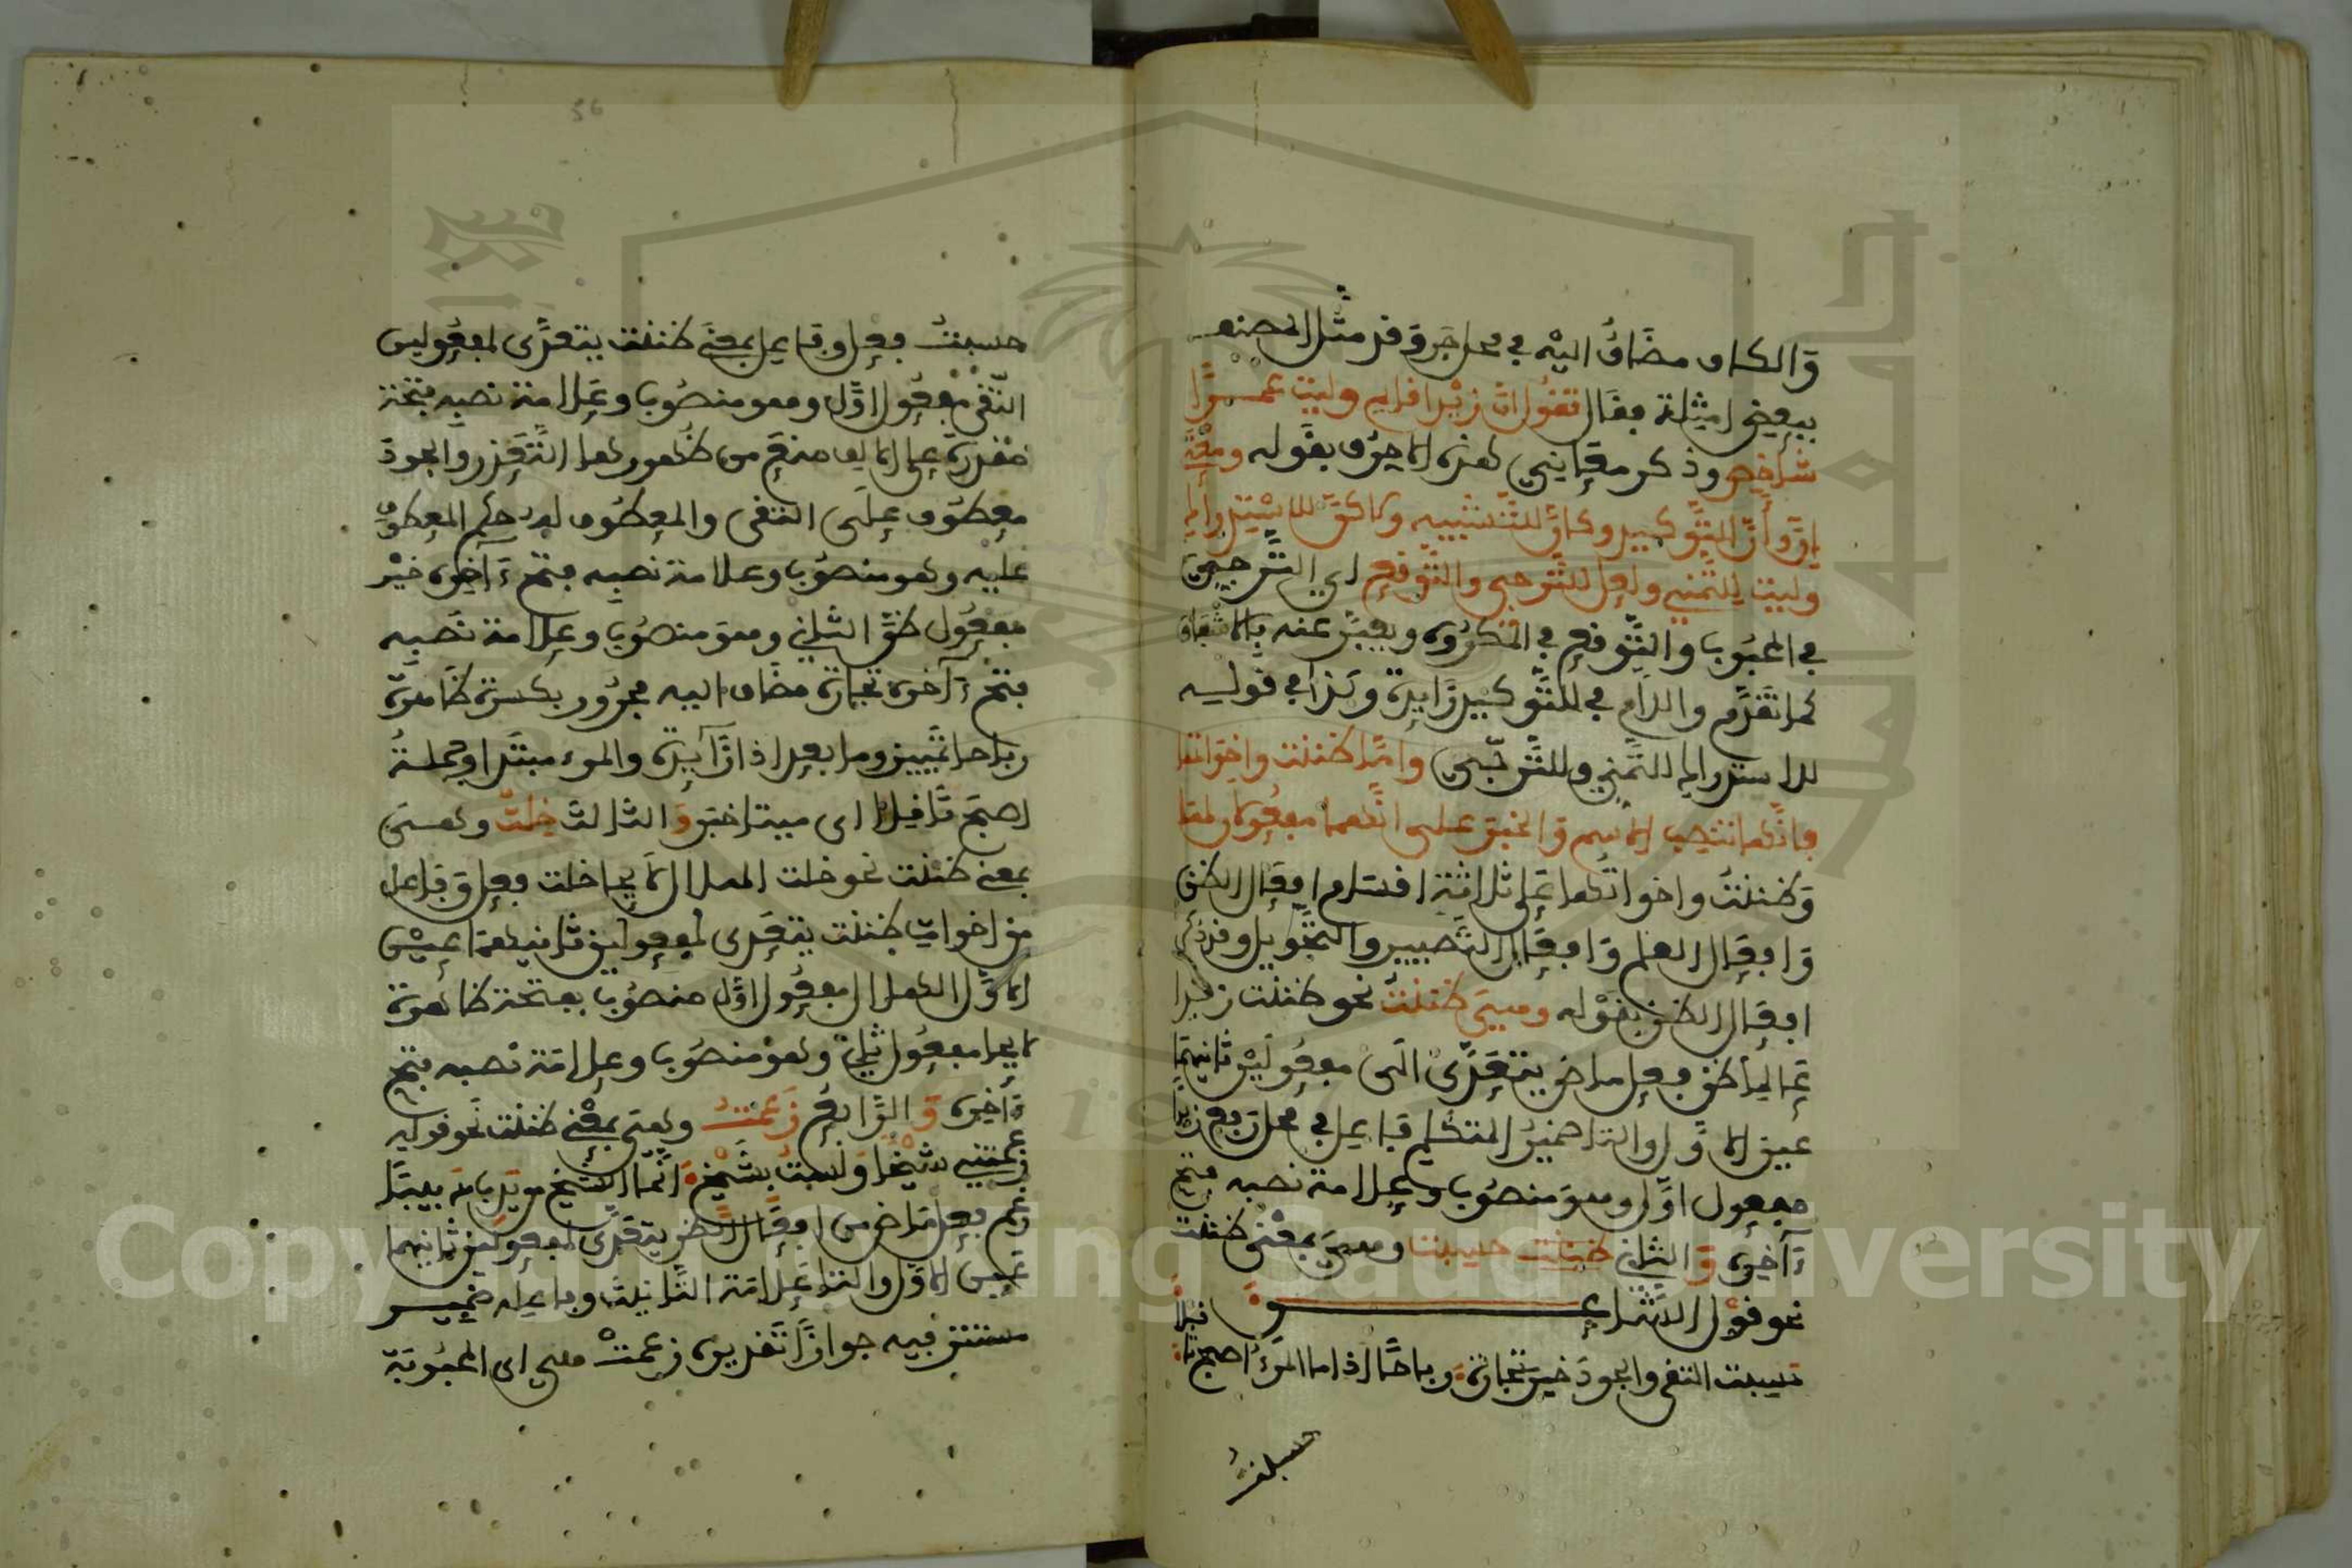 والكاف مضاف اليه في محل جر وقد مثل المصنف
ببعض امثلة فقال تقول ان زيدا قايم وليت عمـــرا
شاخص وذكر معاني هذه الاحرف بقوله ومعنى
ان وأن للتوكيد وكأن للتشبيه ولاكن للاستدراك
وليت للتمني ولعل للترجي والتوقع اي الترجي
في المحبوب والتوقع في المكروه ويعبر عنه بالاشفاق
كما تقدم واللام في للتوكيد زايدة وكذا في قوله
للاستدراك للتمني وللترجي واما ظننت واخواتها
فانها تنصب الاسم والخبر على انهما مفعولان لها
وظننت واخواتها على ثلاثة اقسام افعال الظن
وافعال العلم وافعال التصيير والتحويل وقد ذكر
افعال الظن بقوله وهي ظننت نحو ظننت زيدا
عالما ظن فعل ماض يتعدى الى مفعولين ثانيهما
عين الاول والتا ضمير المتكلم فاعل في محل رفع زيدا
مفعول اول وهو منصوب وعلامة نصبه فتح
ءاخره والثاني حسبت وهي بمعنى ظننت
نحو قول الشاعـــــــر
حسبت التقى والجود خير تجارة رباحا اذا ما المرء اصبح ثاقلا
حسبت فعل وفاعل بمعنى ظننت يتعدى لمفعولين
التقى مفعول اول وهو منصوب وعلامة نصبه فتحة
مقدرة على الالف منع من ظهورها التعذر والجود
معطوف على التقى والمعطوف له حكم المعطوف
عليه وهو منصوب وعلامة نصبه فتح ءاخره خير
مفعول ظن الثاني وهو منصوب وعلامة نصبه
فتح ءاخره تجارة مضاف اليه مجرور بكسرة ظاهرة
رباحا تمييز وما بعد اذا زايدة والمرء مبتدا وجملة
اصبح ثاقلا اى ميتا خبر والثالث خلت وهي
بمعنى ظننت نحو خلت الهلال لايحا خلت فعل وفاعل
من اخوات ظننت يتعدى لمفعولين ثانيهما عين
الاول الهلال مفعول اول منصوب بفتحة ظاهرة
لايحا مفعول ثان وهو منصوب وعلامة نصبه فتح
ءاخره والرابع زعمت وهي بمعنى ظننت نحو قوله
زعمتني شيخا ولست بشيخ انما الشيخ من يدب دبيبا
زعم فعل ماض من افعال الظن يتعدى لمفعولين ثانيهما
عين الاول والتا علامة التانيث وفاعله ضميـــر
مستتر فيه جوازا تقديره زعمت هي اى المحبوبة